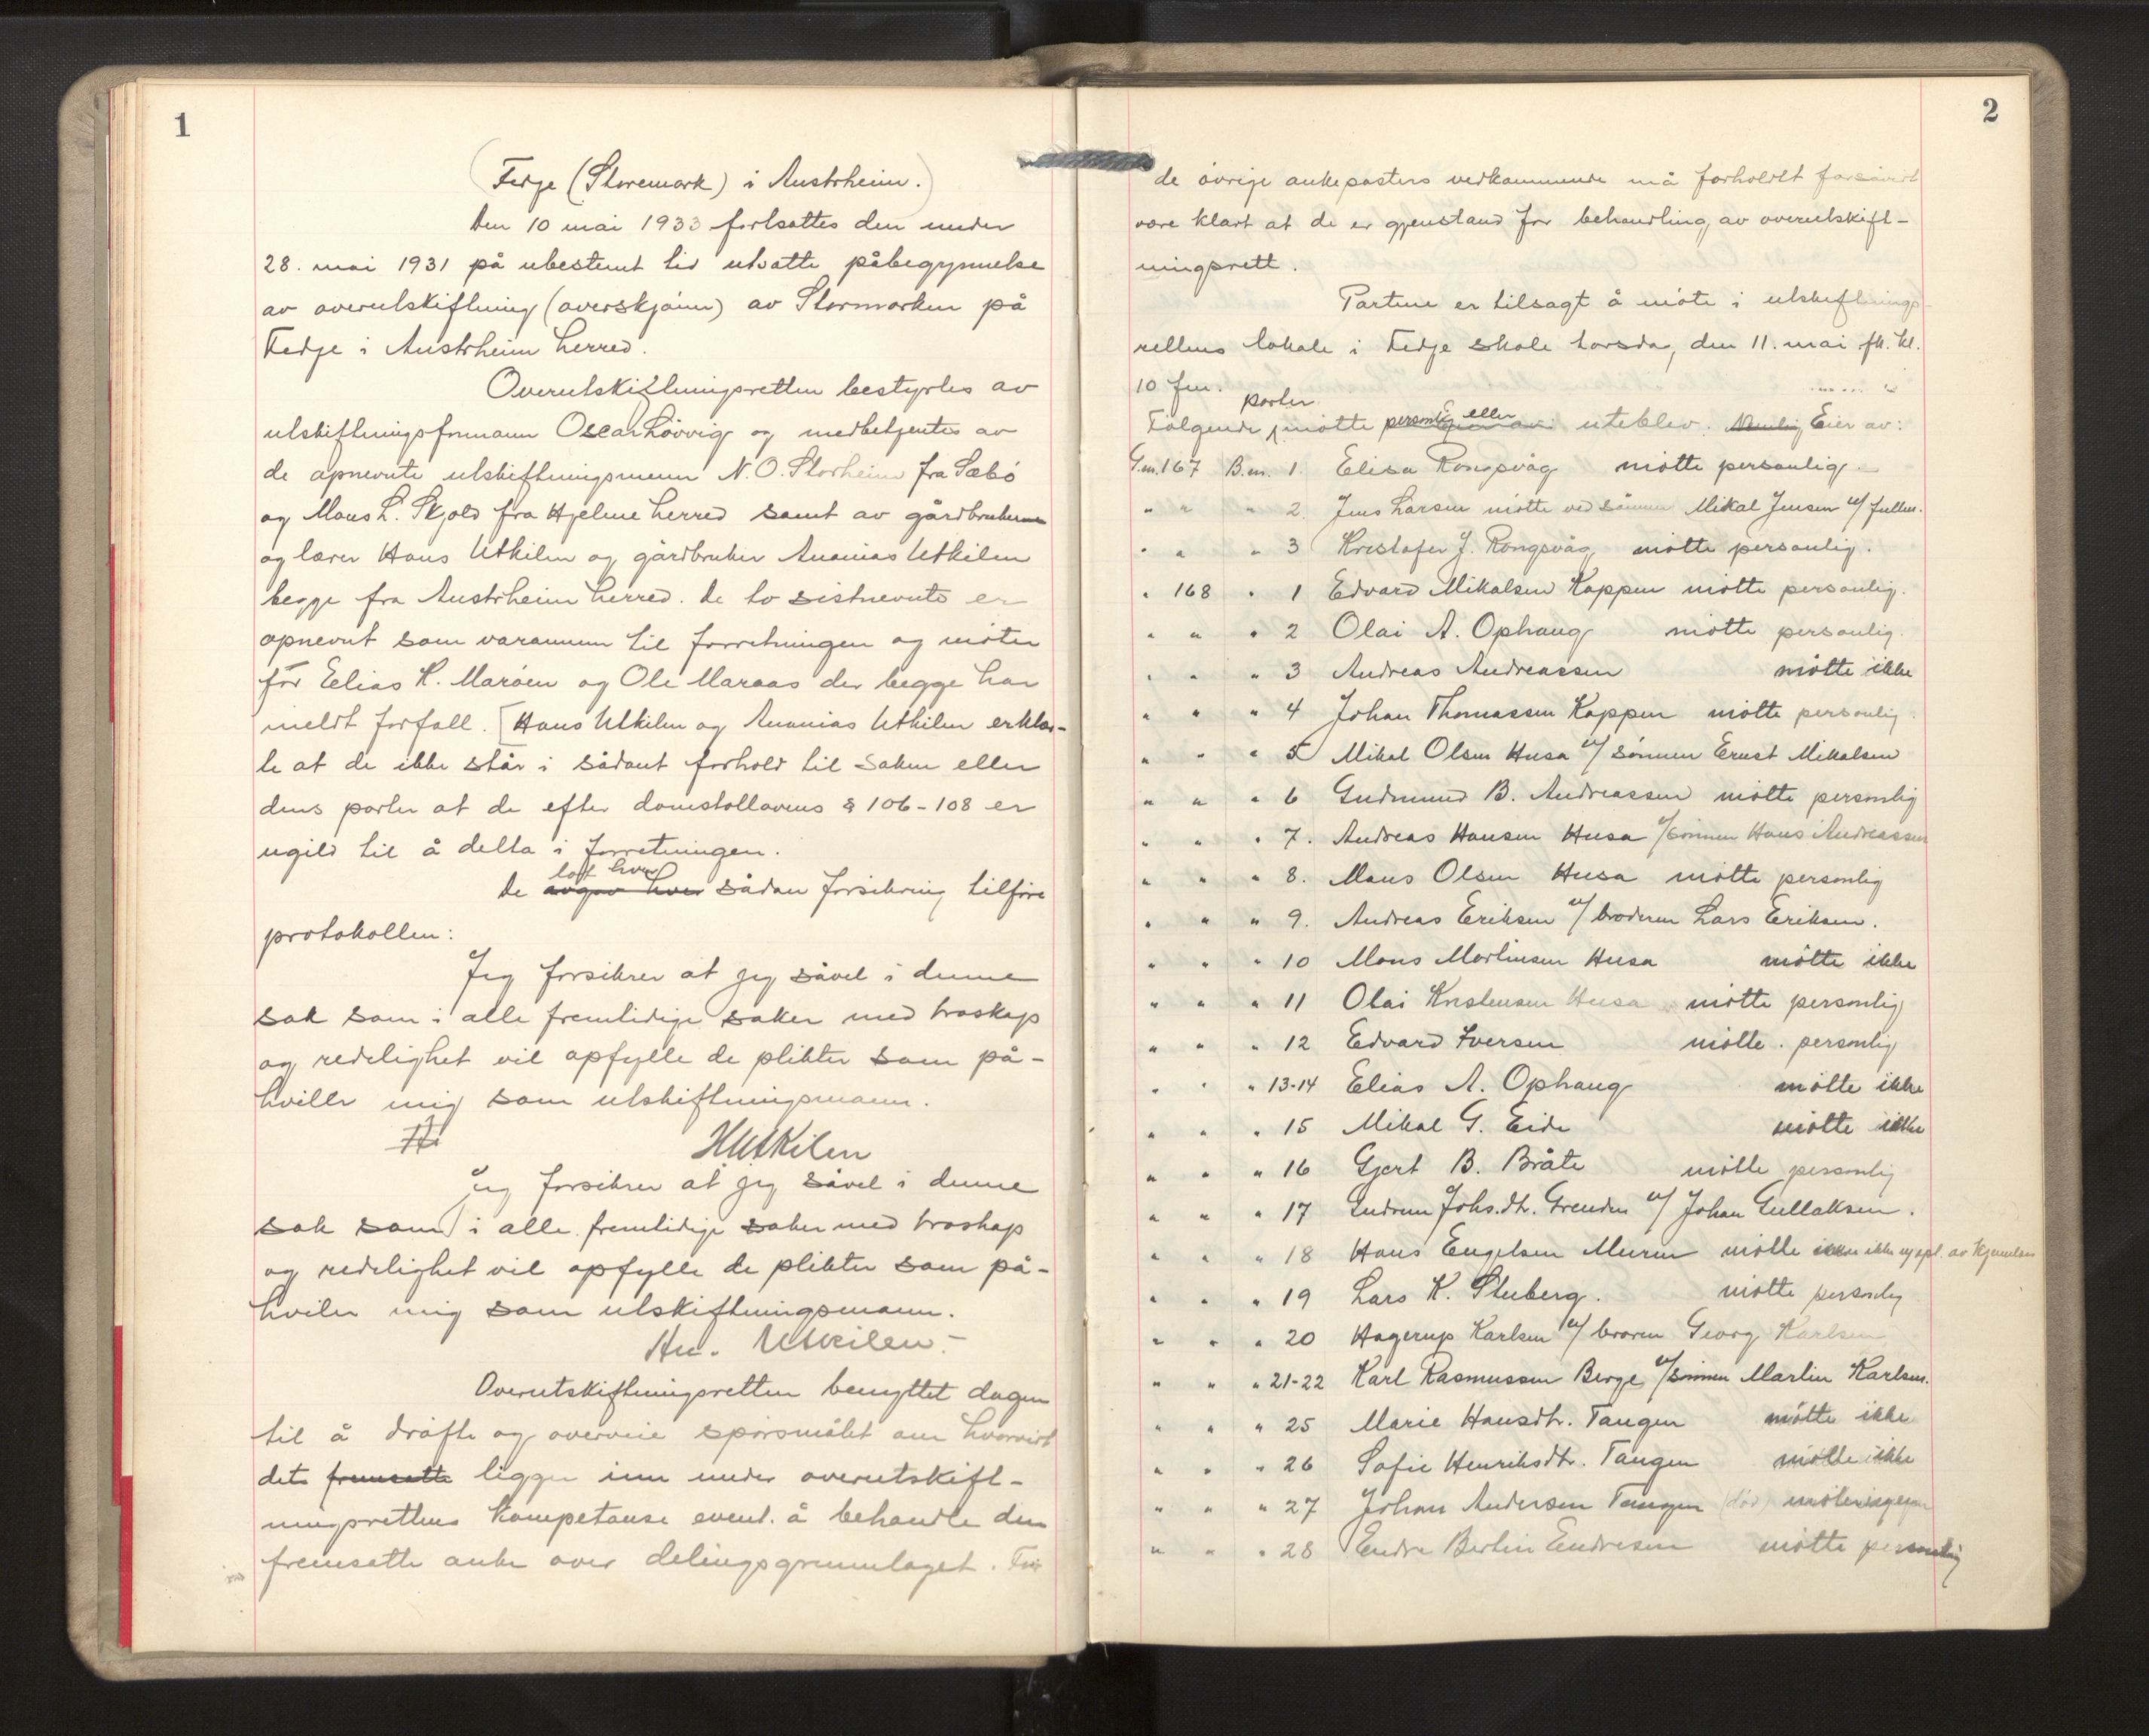 1
Fedje (Storemark) i Austrheim.
Den 10 mai 1933 fortsattes den under
28. mai 1931 på ubestemt tid utsatte påbegynnelse
av overutskiftning (overskjønn) av Stormarken på
Fedje i Austrheim herred.
Overutskiftningsretten bestyrtes av
utskiftningsformann Oscar Løvvig og medbetjentes av
de opnevnte utskiftningsmenn N. O. Storheim fra Sæbö
og Mons L. Skjold fra Hjelme herred samt av gårdbrukerne
og lærer Hans Utkilen og gårdbruker Ananias Utkilen
begge fra Austrheim herred. De to sistnevnte er
opnevnt som varamenn til forretningen og møter
for Elias K. Marøen og Ole Maraas der begge har
meldt forfall. [Hans Utkilen og Ananias Utkilen erklær-
te at de ikke står i sådant forhold til saken eller
dens parter at de efter domstollovens § 106-108 er
ugild til å delta i forretningen.
lot hver
De avgav hver sådan forsikring tilføre
protokollen:
Jeg forsikrer at jeg såvel i denne
sak som i alle fremtidige saker med troskap
og redelighet vil opfylle de plikter som på-
hviler mig som utskiftningsmann.
H Utkilen
Jeg forsikrer at jeg såvel i denne
sak som i alle fremtidige saker med troskap
og redelighet vil opfylle de plikter som på-
hviler mig som utskiftningsmann.
An. Utkilen.
Overutskiftningsretten benyttet dagen
til å drøfte og overveie spørsmålet om hvorvidt
det fremsatte ligger inn under overutskift-
ningsrettens kompetanse event. å behandle den
fremsatte anke over delingsgrunnlaget. For
2
de øvrige ankeposters vedkommende må forholdet forsåvidt
være klart at de er gjenstand for behandling av overutskift-
ningsrett.
Partene er tilsagt å møte i utskiftnings-
rettens lokale i Fedje skole torsdag den 11. mai fk. kl.
10 fm.
parter eller
Følgende møtte personlig uteblev. Eier av:
G.nr. 167 B.nr. 1 Elisa Rongsvåg møtte personlig.
" " " 2 Jens Larsen møtte ved sønnen Mikal Jensen m/ fullm.
" " " 3 Kristofer J. Rongsvåg møtte personlig.
" 168 " 1 Edvard Mikalsen Koppen møtte personlig.
" " " 2 Olai A. Ophaug møtte personlig.
" " " 3 Andreas Andreassen møtte ikke
" " " 4 Johan Thomassen Koppen møtte personlig
" " " 5 Mikal Olsen Husa v/ sønnen Ernst Mikalsen
" " " 6 Gudmund B. Andreassen møtte personlig
" " " 7. Andreas Hansen Husa v/sønnen Hans Andreassen
" " " 8. Mons Olsen Husa møtte personlig
" " " 9. Andreas Eriksen v/ broderen Lars Eriksen.
" " " 10 Mons Martinsen Husa møtte ikke
" " " 11 Olai Kristensen Husa møtte personlig
" " " 12 Edvard Iversen møtte personlig
" " " 13-14 Elias A. Ophaug møtte ikke
" " " 15 Mikal G. Eide møtte ikke
" " " 16 Gjert B. Bråte møtte personlig
" " " 17 Gudrun Johs.dtr. Grenden v/ Johan Gullaksen.
" " " 18 Hans Engelsen Muren møtte ikke
" " " 19 Lars K. Stuberg. møtte personlig
" " " 20 Hagerup Karlsen v/ broren Georg Karlsen
" " " 21-22 Karl Rasmussen Berge v/sønnen Martin Karlsen.
" " " 25 Marie Hansdtr. Tangen møtte ikke
" " " 26 Sofie Henriksdtr. Tangen møtte ikke
" " " 27 Johan Andersen Tangen (død) møtte ingen
" " " 28 Endre Bertin Endresen møtte personlig